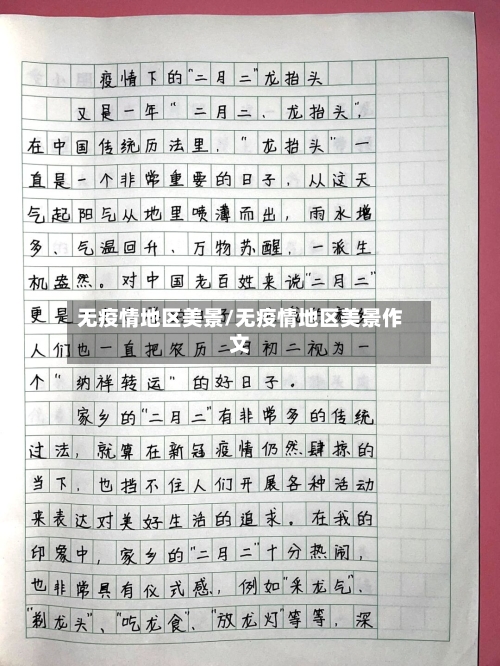 疫情下的"二月二"龙抬头
又是一年"二月二、龙抬头",
在中国传统历法里，"龙抬头"一
直是一个非常重要的日子，从这天
气起阳气从地里喷薄而出，雨水增
多、气温回升、万物苏醒，一派生
机盎然。对中国老百姓来说"二月二"
更是
无疫情地区美景/无疫情地区美景作
文
人们也一直把农历二月初二视为一
个"纳祥转运"的好日子。
家乡的"二月二"有非常多的传统
过法，就算在新冠疫情仍然肆掠的
当下，也挡不住人们开展各种活动
来表达对美好生活的追求。在我的
印象中，家乡的"二月二"十分热闹，
也非常具有仪式感，例如"采龙气"、
"剃龙头"、"吃龙食"、"放龙灯"等等，深